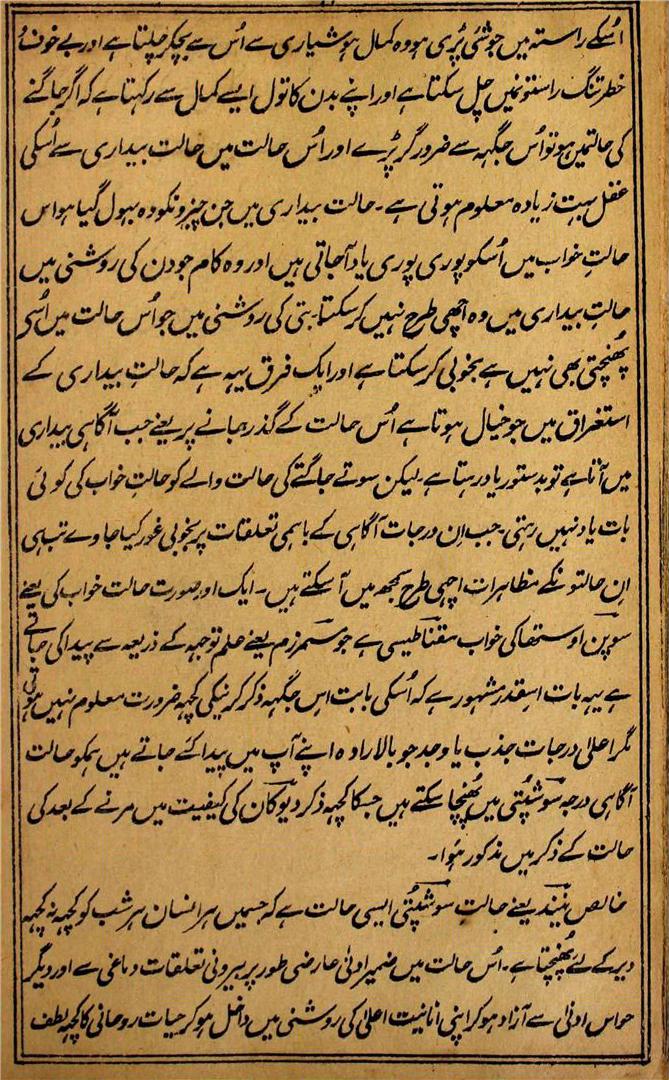 اُسکے راستہ میں جو شئی پڑی ہو وہ کمال ہوشیاری سے اُس سے بچکر چلتا ہے اور بے خوف و
خطر تنگ راستونمیں چل سکتا ہے اور اپنے بدن کا تول ایسے کمال سے رکہتا ہے کہ اگر جاگنے
کی حالتمیں ہو تو اُس جگہہ سے ضرور گر پڑے اور اُس حالت میں حالت بیداری سے اُسکی
عقل بہت زیادہ معلوم ہوتی ہے ۔ حالت بیداری میں جن چیزونکو وہ بہول گیا ہو اس
حالتِ خواب میں اُسکو پوری پوری یاد آجاتی ہیں اور وہ کام جو دن کی روشنی میں
حالتِ بیداری میں وہ اچھی طرح نہیں کر سکتا ۔ بتی کی روشنی میں جو اُس حالت میں اُسی
پُھنچتی بھی نہیں ہے بخوبی کر سکتا ہے اور ایک فرق یہہ ہے کہ حالتِ بیداری کے
استغراق میں جو خیال ہوتا ہے اُس حالت کے گذر جانے پر یعنے جب آگاہی بیداری
میں آتا ہے تو بدستور یاد رہتا ہے ۔ لیکن سوتے جاگتے کی حالت والے کو حالتِ خواب کی کوئی
بات یاد نہیں رہتی ۔ جب اِن درجات آگاہی کے باہمی تعلقات پر بخوبی غور کیا جاوے تب ہی
اِن حالتونکے مظاہرات اچہی طرح سمجھ میں آ سکتے ہیں ۔ ایک اور صورت حالت خواب کی یعنے
سوپن اوستھا کی خواب مقناطیسی ہے جو مسمرزم یعنے علم توجہہ کے ذریعہ سے پیدا کی جاتی
ہے یہہ بات اسقدر مشہور ہے کہ اُسکی بابت اس جگہہ ذکر کرنیکی کچہہ ضرورت معلوم نہیں ہوتی
مگر اعلیٰ درجات جذب یا وجد جو بالارادہ اپنے آپ میں پیدا کئے جاتے ہیں ہمکو حالت
آگاہی درجہ سوشپتی میں پُھنچا سکتے ہیں جسکا کچہہ ذکر دیوکان کی کیفیت میں مرنے کے بعد کی
حالت کے ذکر میں مذکور ہوا ۔
خالص نیند یعنے حالتِ سوشپتی ایسی حالت ہے کہ جسمیں ہر انسان ہر شب کو کچہہ نہ کچہہ
دیر کے لئے پُھنچتا ہے ۔ اُس حالت میں ضمیر ادنیٰ عارضی طور پر بیرونی تعلقات دماغی سے اور دیگر
حواس ادنیٰ سے آزاد ہو کر اپنی انانیت اعلیٰ کی روشنی میں داخل ہو کر حیات روحانی کا کچہہ لطف